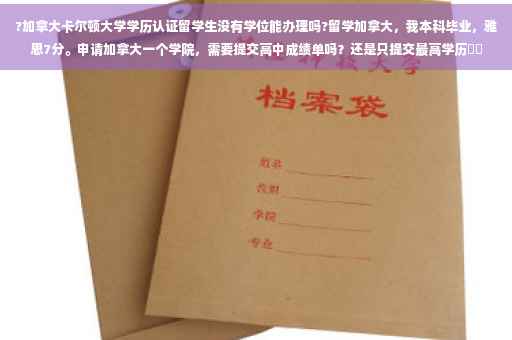 ?加拿大卡尔顿大学学历认证留学生没有学位能办理吗?留学加拿大，我本科毕业，雅
思7分。申请加拿大一个学院，需要提交高中成绩单吗？还是只提交最高学历
科技大学
档案袋
姓名
学院
专业